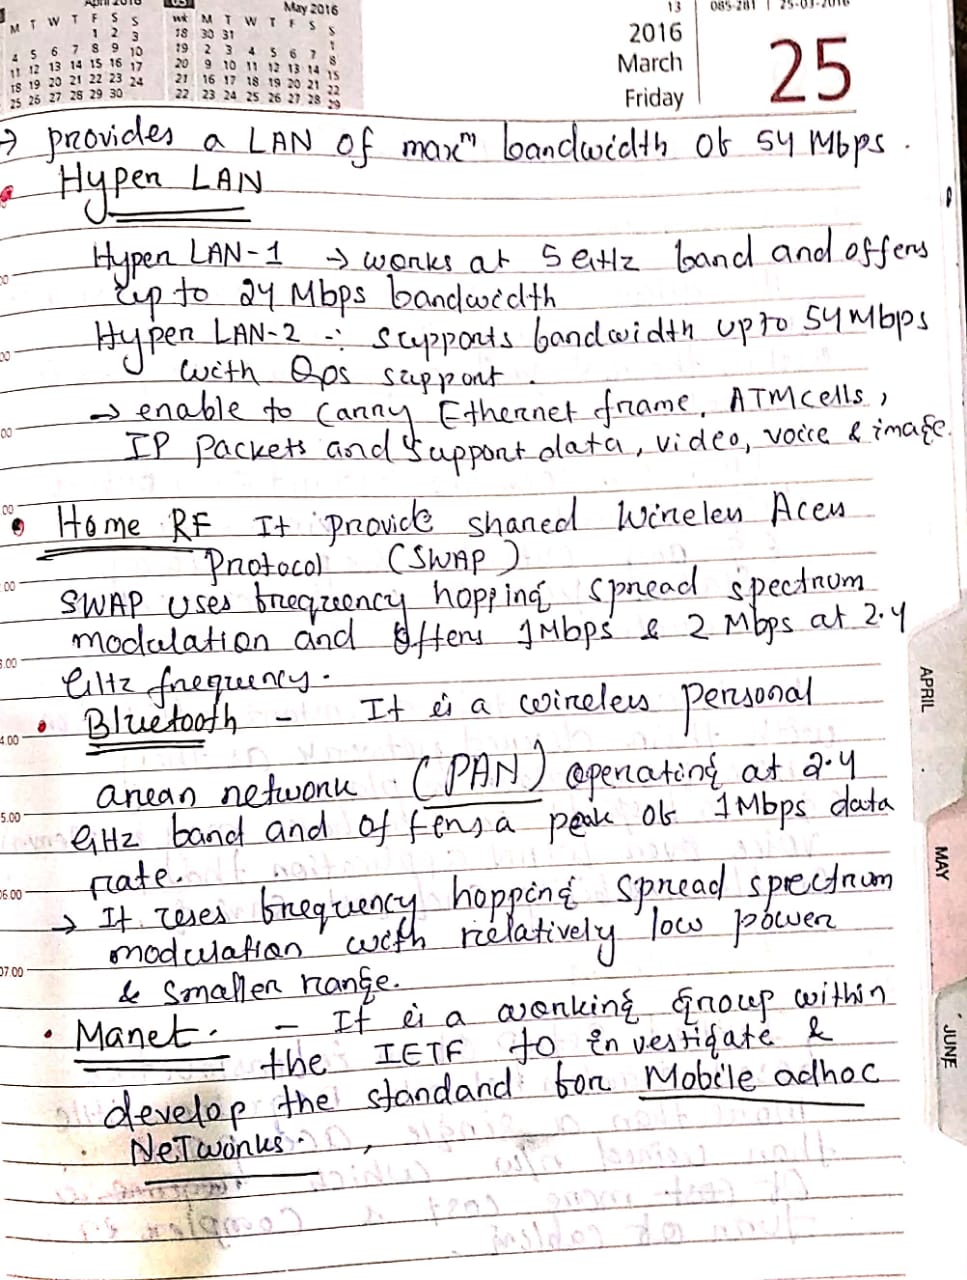 April 2016
M T W T F S S
1 2 3
4 5 6 7 8 9 10
11 12 13 14 15 16 17
18 19 20 21 22 23 24
25 26 27 28 29 30
May 2016
wk M T W T F S S
18 30 31 1
19 2 3 4 5 6 7 8
20 9 10 11 12 13 14 15
21 16 17 18 19 20 21 22
22 23 24 25 26 27 28 29
13
085-281 | 25-03-2016
2016
March
Friday
25
→ provides a LAN of maxm bandwidth of 54 Mbps.
• Hyper LAN
Hyper LAN-1 → works at 5 GHz band and offers
up to 24 Mbps bandwidth
Hyper LAN-2 -: supports bandwidth upto 54 Mbps
with Qos support.
→ enable to carry Ethernet frame, ATM cells,
IP Packets and support data, video, voice & image.
• Home RF It provide shared Wireless Acess
Protocol (SWAP)
SWAP uses frequency hopping spread spectrum
modulation and offers 1Mbps & 2 Mbps at 2.4
GHz frequency.
• Bluetooth - It is a wireless personal
arean network (PAN) operating at 2.4
GHz band and offers a peak of 1Mbps data
rate.
→ It uses frequency hopping spread spectrum
modulation with relatively low power
& smaller range.
• Manet. - It is a working group within
the IETF to investigate &
develop the standard for Mobile adhoc
NeTworks.
3.00
4.00
5.00
06.00
07.00
APRIL
MAY
JUNE